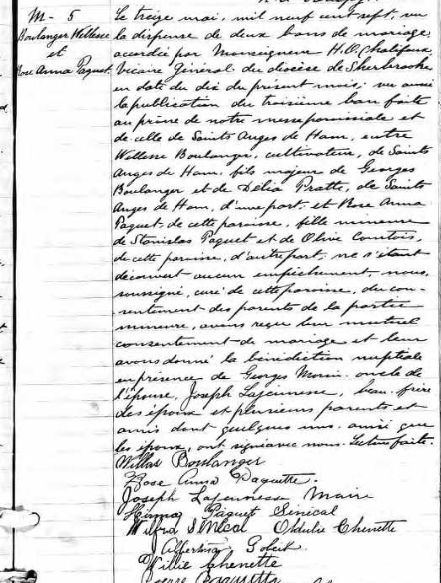 M - 5
Boulanger Wellesse
et
Rose Anna Paquet
Le treize mai, mil neuf cent sept, vu
la dispense de deux bans de mariage
accordée par Monseigneur H.O. Chalifoux
Vicaire Général du diocèse de Sherbrooke
en date du dix du présent mois; vu aussi
la publication du troisième ban faite
au prône de notre messe paroissiale et
de celle de Saints Anges de Ham, entre
Wellesse Boulanger, cultivateur, de Saints
Anges de Ham, fils majeur de Georges
Boulanger et de Délia Pratte, de Saints
Anges de Ham, d'une part, et Rose Anna
Paquet, de cette paroisse, fille mineure
de Stanislas Paquet et de Olive Comtois,
de cette paroisse, d'autre part, ne s'étant
découvert aucun empêchement, nous,
soussigné, curé de cette paroisse, du con-
sentement des parents de la partie
mineure, avons reçu leur mutuel
consentement de mariage et leur
avons donné la bénédiction nuptiale
en présence de Georges Morin oncle de
l'épouse, Joseph Lajeunesse, beau-frère
des époux et plusieurs parents et
amis dont quelques uns, ainsi que
les époux, ont signé avec nous. Lecture faite.
Willas Boulanger
Rose Anna Paquette.
Joseph Lajeunesse
Paquet Sénical
Wilfrid
Albertina
Willie Chenette
Paquette